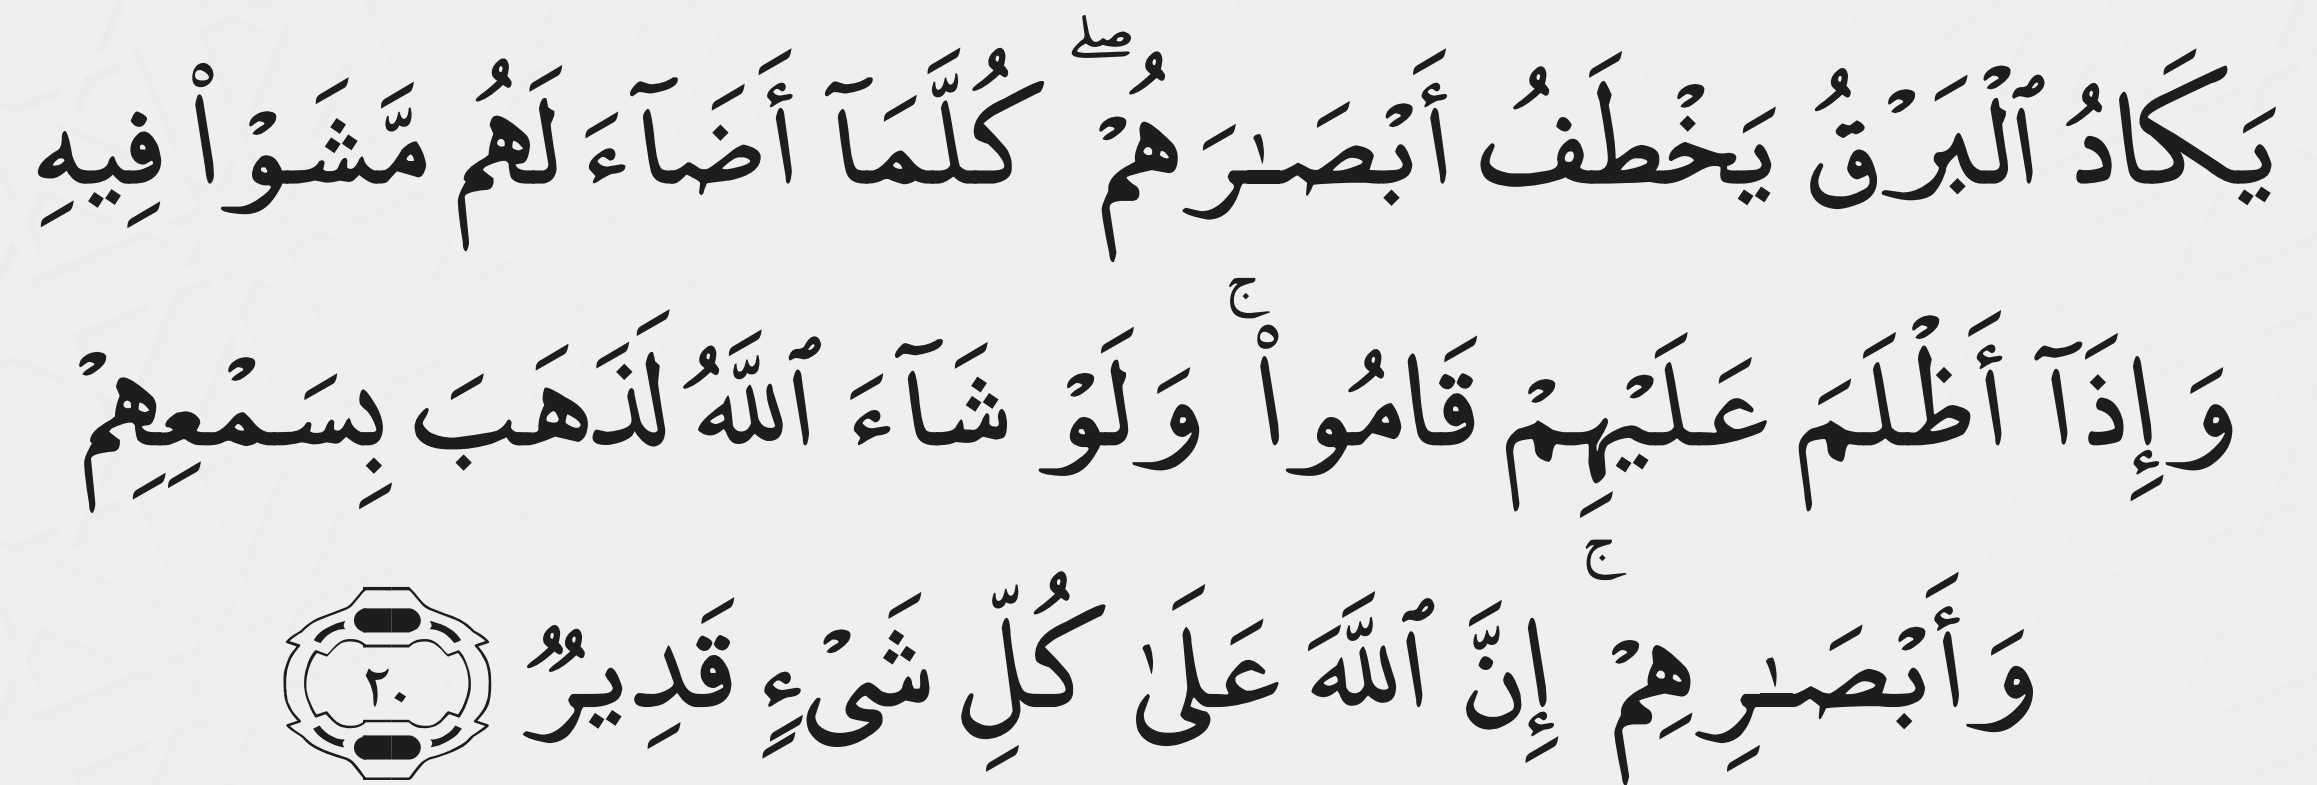 يَكَادُ ٱلْبَرْقُ يَخْطَفُ أَبْصَـٰرَهُمْ ۖ كُلَّمَآ أَضَآءَ لَهُم مَّشَوْا۟ فِيهِ
وَإِذَآ أَظْلَمَ عَلَيْهِمْ قَامُوا۟ ۚ وَلَوْ شَآءَ ٱللَّهُ لَذَهَبَ بِسَمْعِهِمْ
وَأَبْصَـٰرِهِمْ ۚ إِنَّ ٱللَّهَ عَلَىٰ كُلِّ شَىْءٍ قَدِيرٌ ٢٠